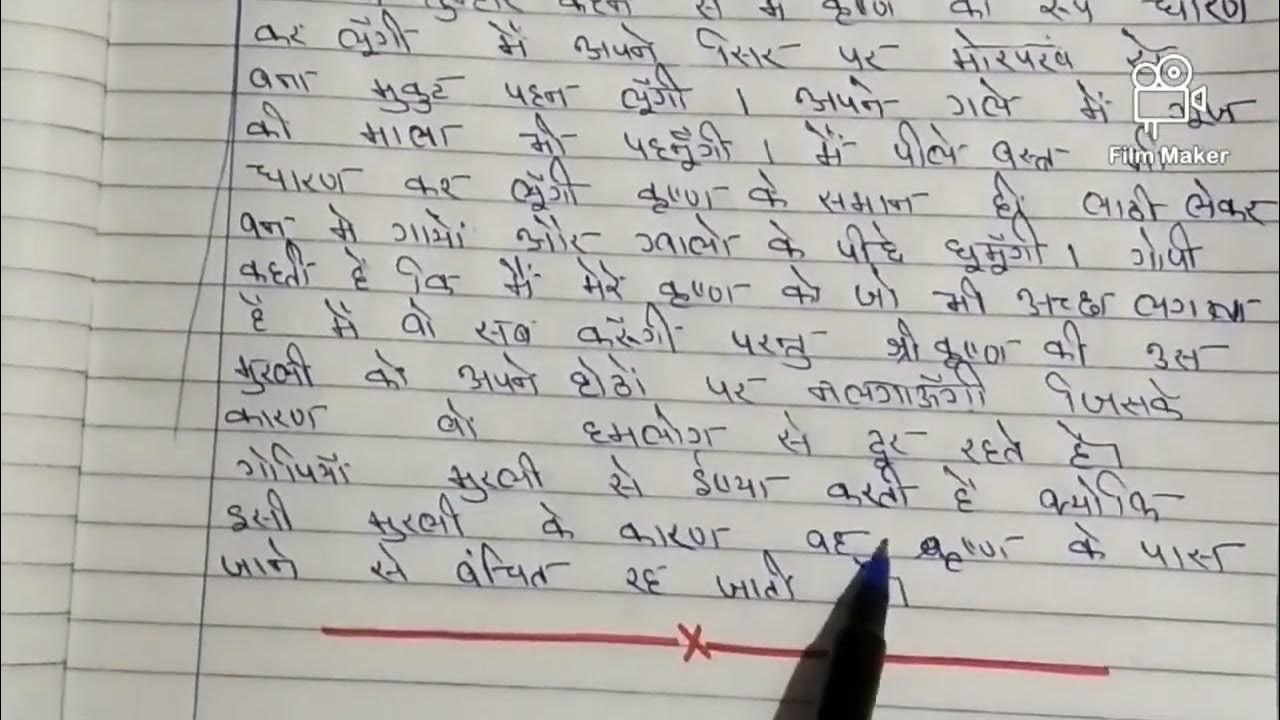 करने से मैं कृष्ण का रूप धारण
कर लूँगी मैं अपने सिर पर मोरपंख से
बना मुकुट पहन लूँगी । अपने गले में गूंज
की माला भी पहनूँगी । मैं पीले वस्त्र
धारण कर लूँगी कृष्ण के समान ही लाठी लेकर
वन मे गायों और ग्वालो के पीछे घूमूँगी । गोपी
कहती है कि मैं मेरे कृष्ण को जो भी अच्छा लगता
है मैं वो सब करूँगी परन्तु श्री कृष्ण की उस
मुरली को अपने होठों पर नलगाऊँगी जिसके
कारण वो हमलोग से दूर रहते है।
गोपियाँ मुरली से ईर्ष्या करती है क्योकि
इसी मुरली के कारण वह कृष्ण के पास
जाने से वंचित रह जाती ।
Film Maker